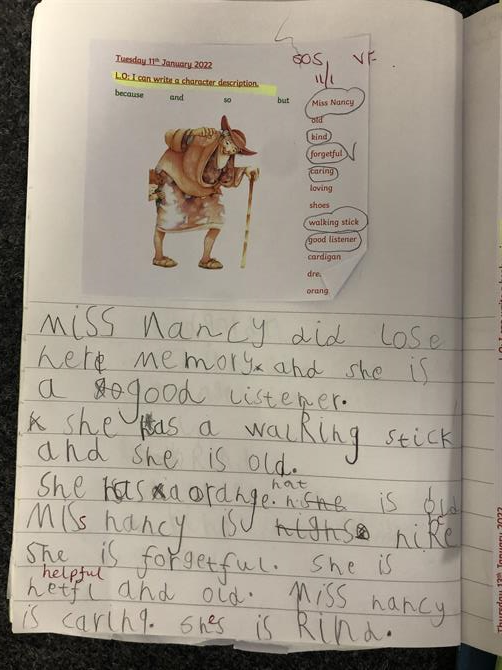 Tuesday 11th January 2022
L.O: I can write a character description.
because and so but
SOS VF
11/1
Miss Nancy
old
kind
forgetful
caring
loving
shoes
walking stick
good listener
cardigan
dre
orang
Miss Nancy did lose
here memory. and she is
a so good listener.
she has a walking stick
and she is old.
hat
She has a ordnge. she is old
Miss nancy is nike
She is forgetful. She is
helpful
hetfl and old. Miss nancy
is caring. shes is kind.
Thursday 13th January 2022